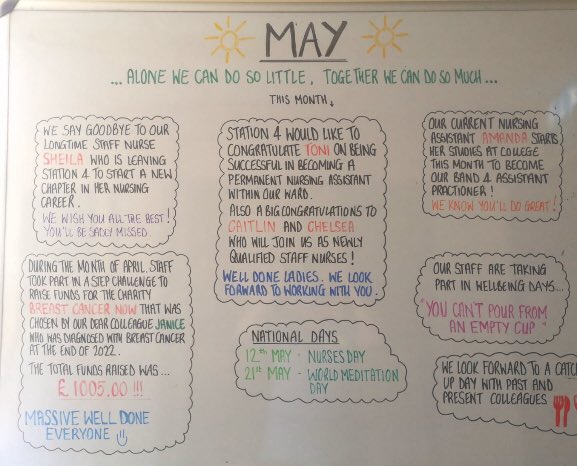 MAY
...ALONE WE CAN DO SO LITTLE, TOGETHER WE CAN DO SO MUCH...
THIS MONTH
WE SAY GOODBYE TO OUR
LONGTIME STAFF NURSE
SHEILA WHO IS LEAVING
STATION 4 TO START A NEW
CHAPTER IN HER NURSING
CAREER.
WE WISH YOU ALL THE BEST!
YOU'LL BE SADLY MISSED.
STATION 4 WOULD LIKE TO
CONGRATULATE TONI ON BEING
SUCCESSFUL IN BECOMING A
PERMANENT NURSING ASSISTANT
WITHIN OUR WARD.
ALSO A BIG CONGRATULATIONS TO
CAITLIN AND CHELSEA
WHO WILL JOIN US AS NEWLY
QUALIFIED STAFF NURSES!
WELL DONE LADIES. WE LOOK
FORWARD TO WORKING WITH YOU.
OUR CURRENT NURSING
ASSISTANT AMANDA STARTS
HER STUDIES AT COLLEGE
THIS MONTH TO BECOME
OUR BAND 4 ASSISTANT
PRACTIONER!
WE KNOW YOU'LL DO GREAT!
DURING THE MONTH OF APRIL STAFF
TOOK PART IN A STEP CHALLENGE TO
RAISE FUNDS FOR THE CHARITY
BREAST CANCER NOW THAT WAS
CHOSEN BY OUR DEAR COLLEAGUE JANICE
WHO WAS DIAGNOSED WITH BREAST CANCER
AT THE END OF 2022.
THE TOTAL FUNDS RAISED WAS...
£1005.00 !!!
MASSIVE WELL DONE
EVERYONE
NATIONAL DAYS
12TH MAY - NURSES DAY
21ST MAY - WORLD MEDITATION
DAY
OUR STAFF ARE TAKING
PART IN WELLBEING DAYS...
"YOU CAN'T POUR FROM
AN EMPTY CUP"
WE LOOK FORWARD TO A CATCH
UP DAY WITH PAST AND
PRESENT COLLEAGUES